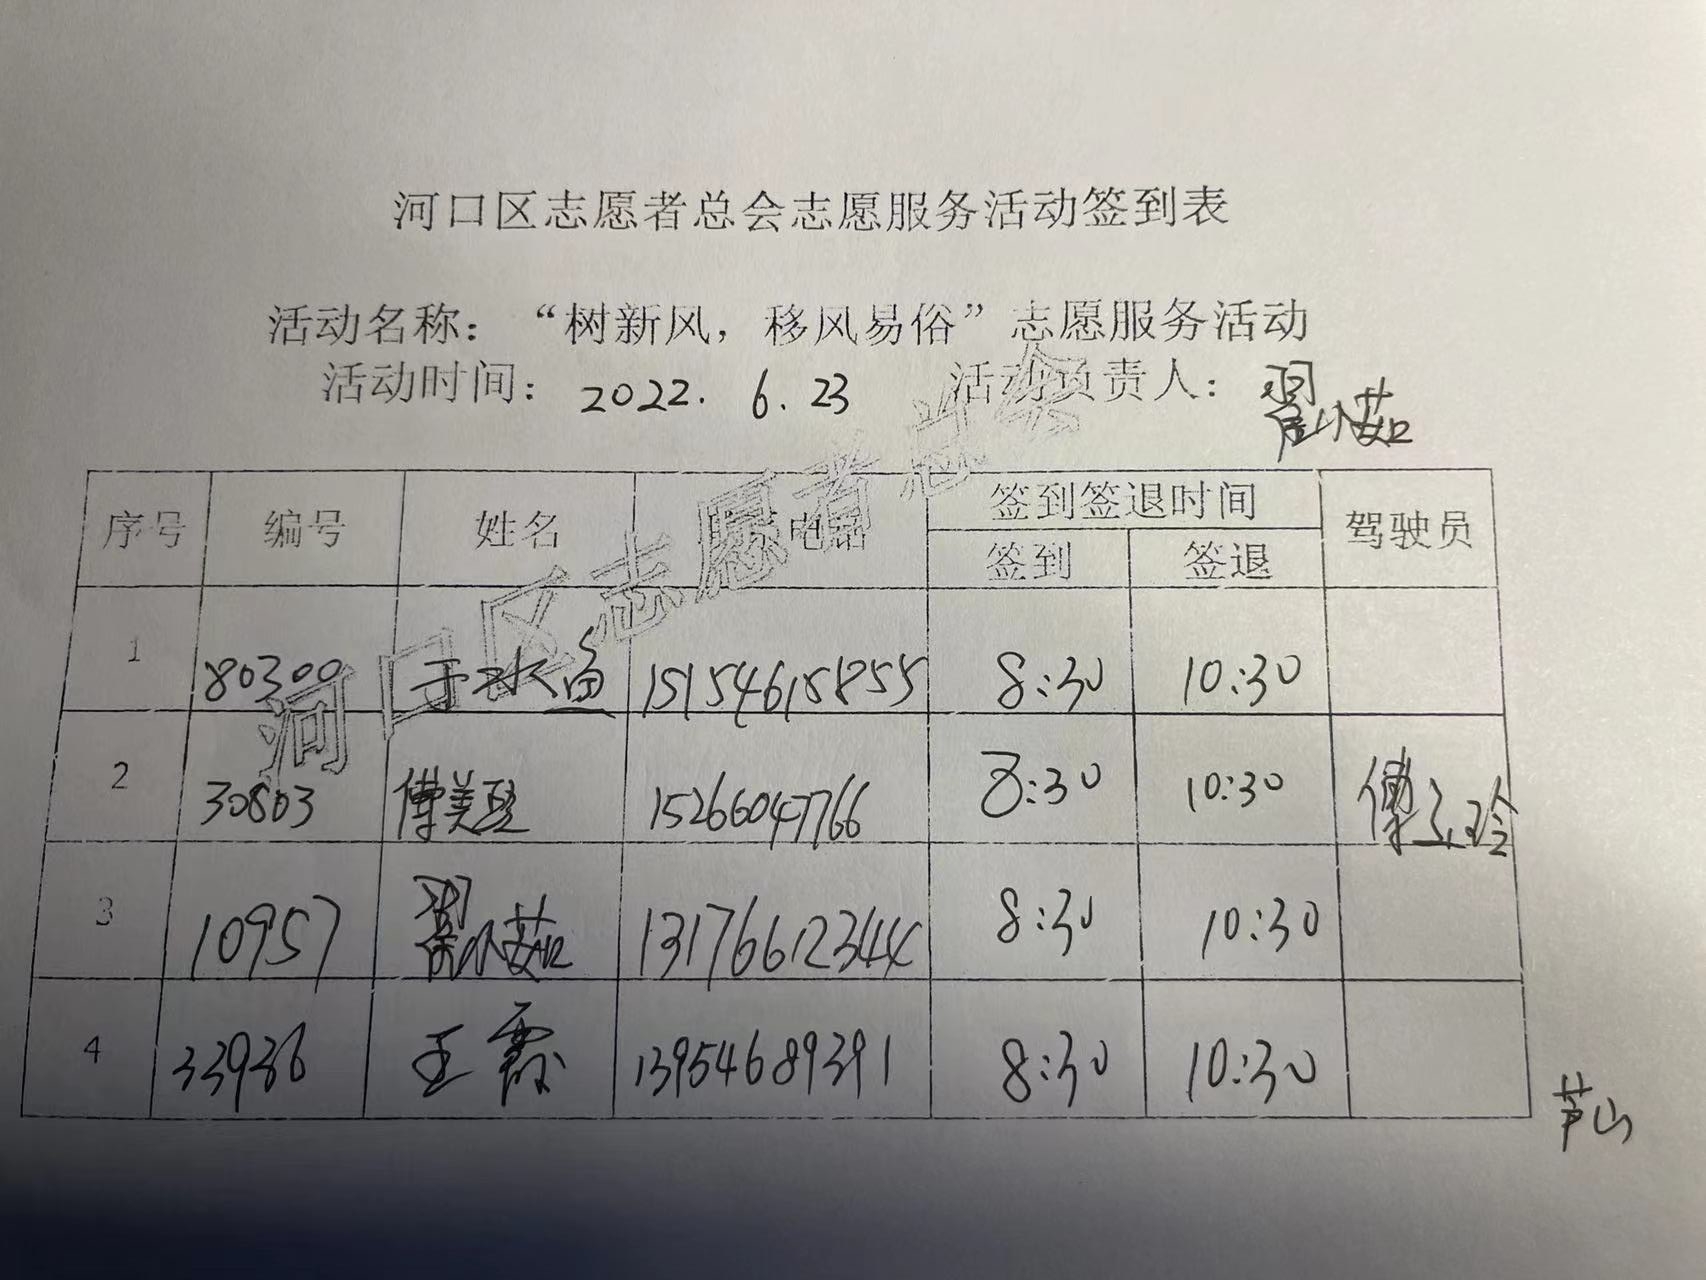 河口区志愿者总会志愿服务活动签到表
活动名称：“树新风，移风易俗”志愿服务活动
活动时间：2022. 6. 23 活动负责人：翟小茹
序号 编号 姓名 联系电话 签到签退时间 驾驶员
签到 签退
1 80300 于水鱼 15154615855 8:30 10:30
2 30803 傅美玲 15266047766 8:30 10:30 傅玲
3 10957 翟小茹 13176612344 8:30 10:30
4 33936 王霞 13954689391 8:30 10:30
芦山
河口区志愿者总会